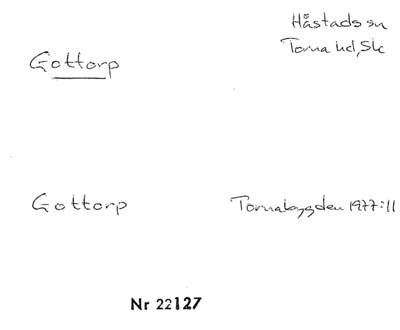 Håstads sn
Gottorp
Torna hd, Sk
Gottorp
Tornabygden 1977:11
Nr 22127